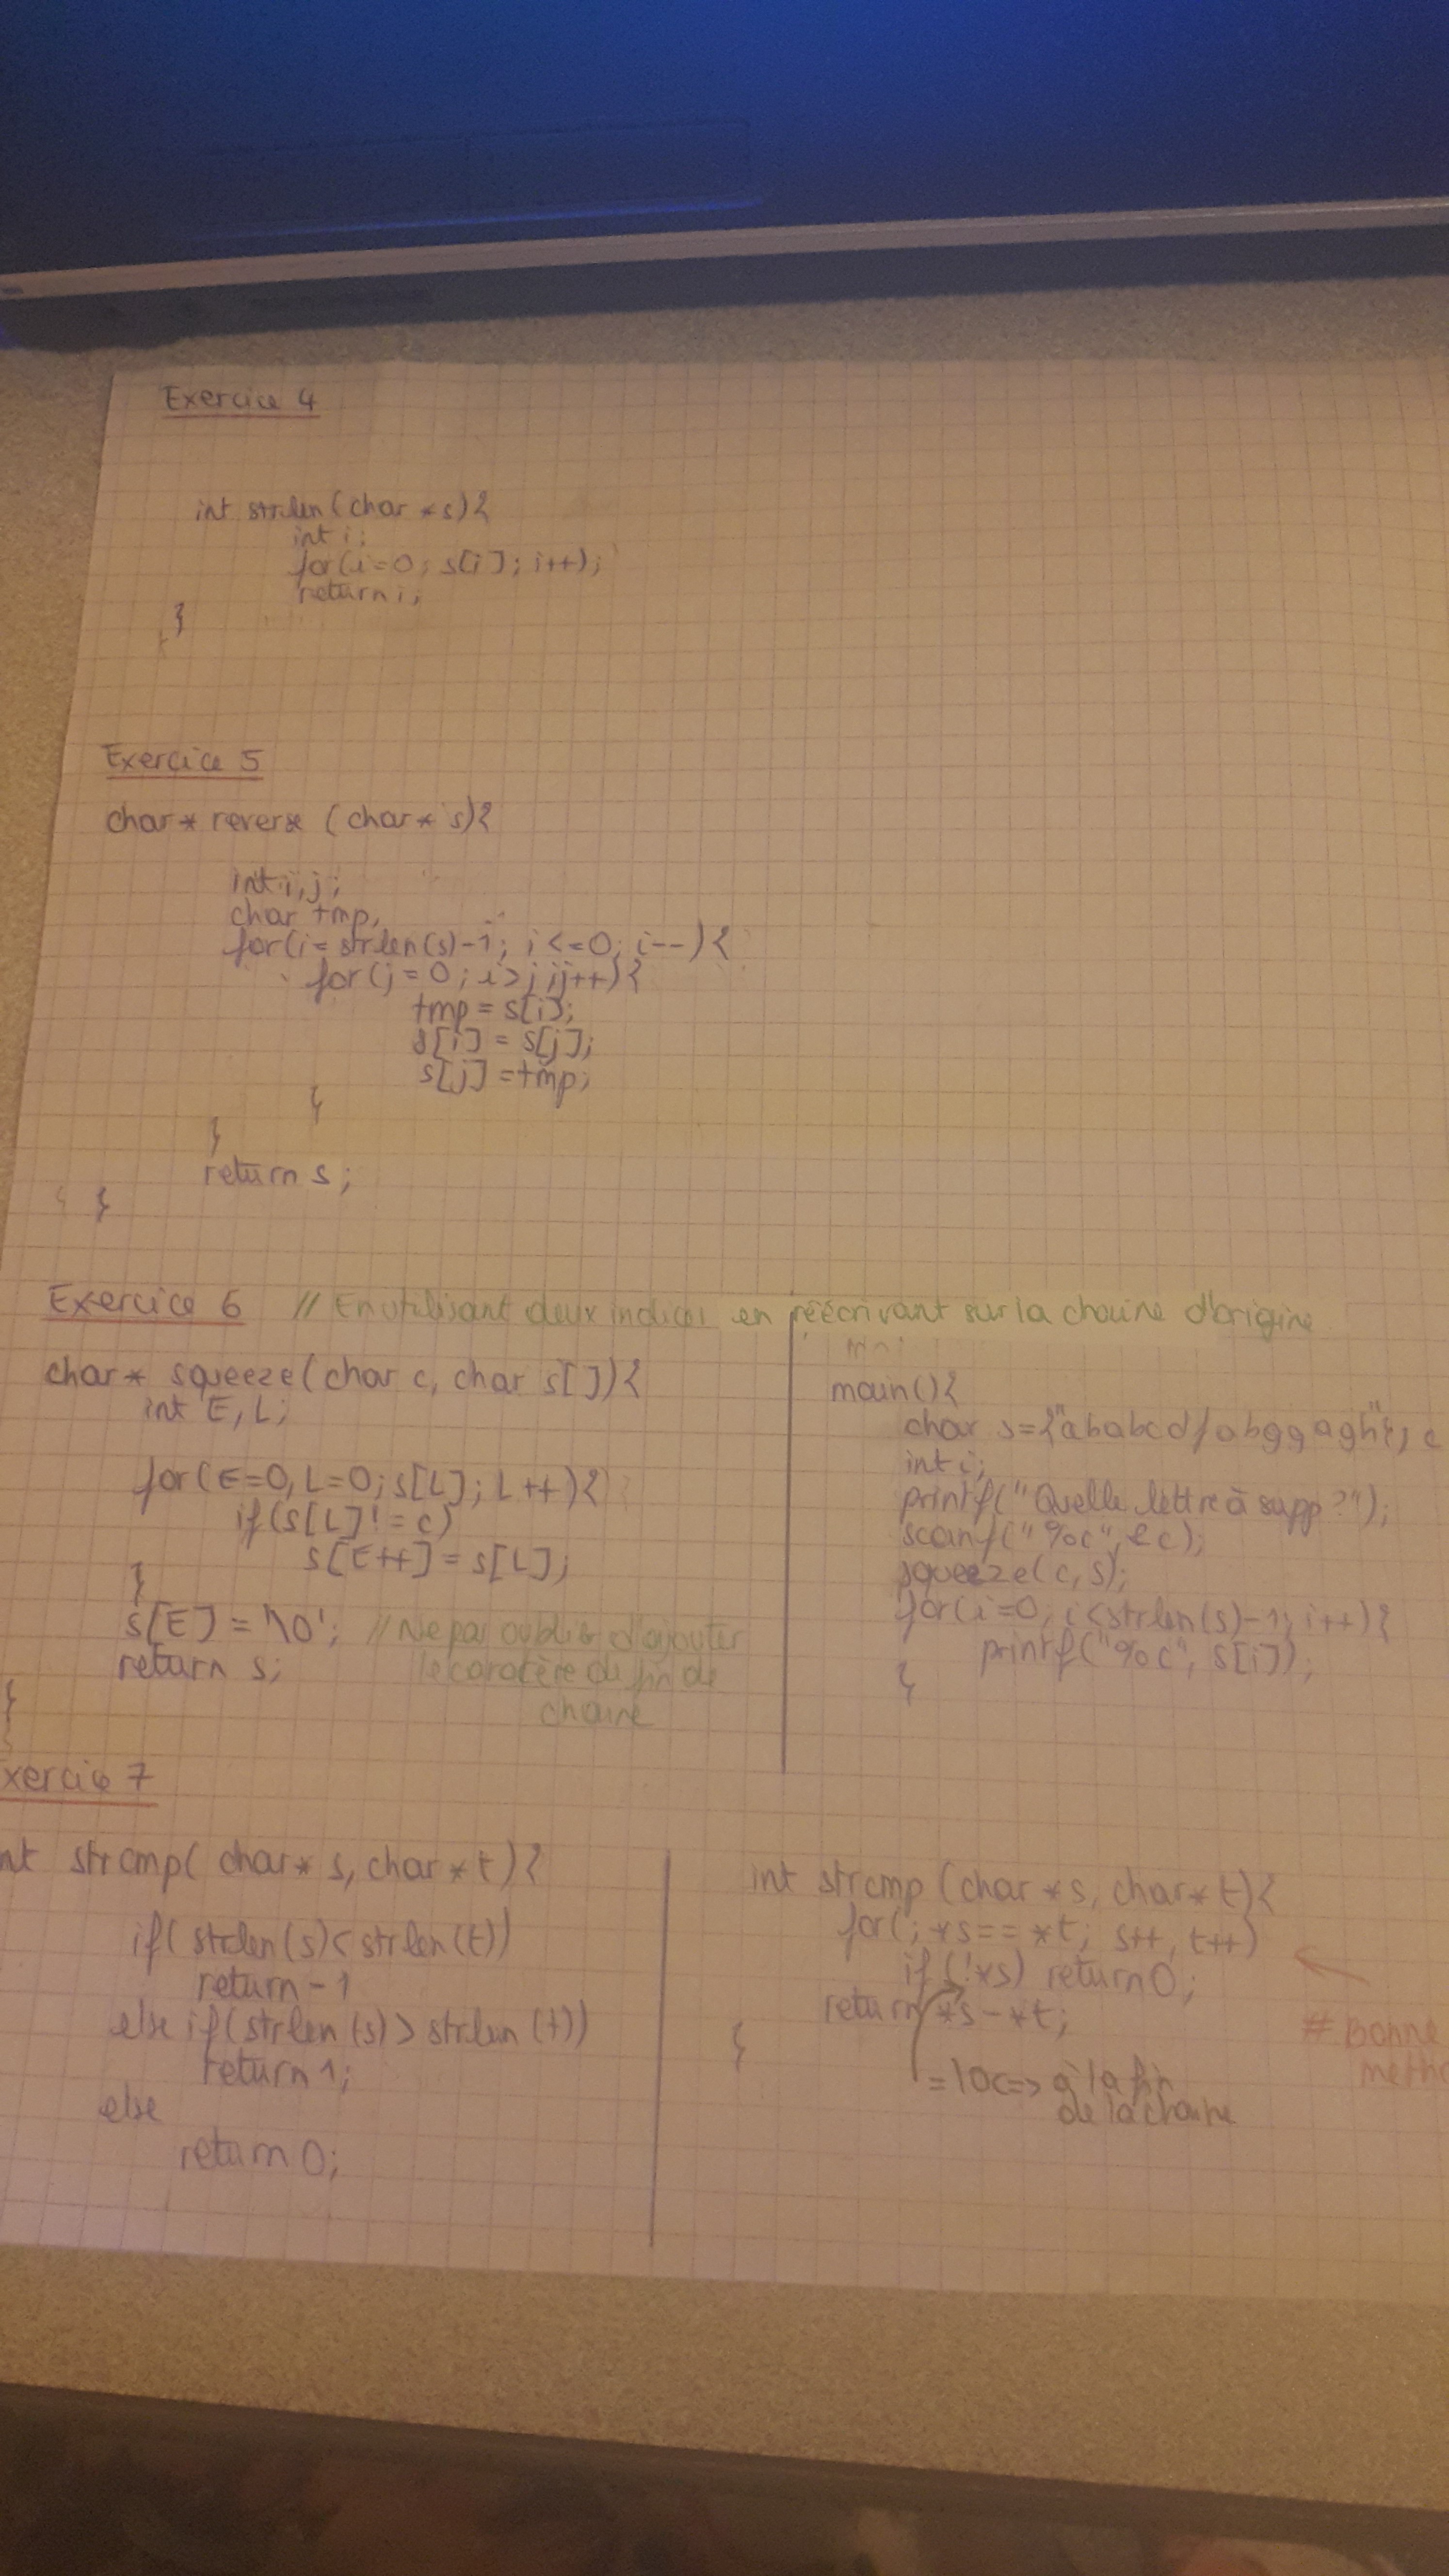 Exercice 4
int strlen (char *s){
int i;
for(i=0; s[i]; i++);
return i;
}
Exercice 5
char* reverse (char* s){
int i,j;
char tmp,
for(i= strlen(s)-1; i<=0; i--){
for(j=0; i>j; j++){
tmp = s[i];
s[i] = s[j];
s[j] = tmp;
}
}
return s;
}
Exercice 6 // En utilisant deux indices en réécrivant sur la chaine d'origine
char* squeeze(char c, char s[]){
int E, L;
for(E=0, L=0; s[L]; L++){
if(s[L]!=c)
s[E++] = s[L];
}
s[E] = '\0'; // Ne pas oublier d'ajouter
le caractère de fin de
chaine
return s;
}
main(){
char s={"ababcd/abggagh"}, c
int i;
printf("Quelle lettre à supp?");
scanf("%c", &c);
squeeze(c,s);
for(i=0, i<strlen(s)-1; i++){
printf("%c", s[i]);
}
xercice 7
nt strcmp( char* s, char* t){
if( strlen(s)< strlen(t))
return -1
else if(strlen(s)> strlen(t))
return 1;
else
return 0;
int strcmp (char *s, char* t){
for(; *s== *t; s++, t++)
if (!*s) return 0;
return *s-*t;
}
=\0 <=> à la fin
de la chaine
# Bonne
meth